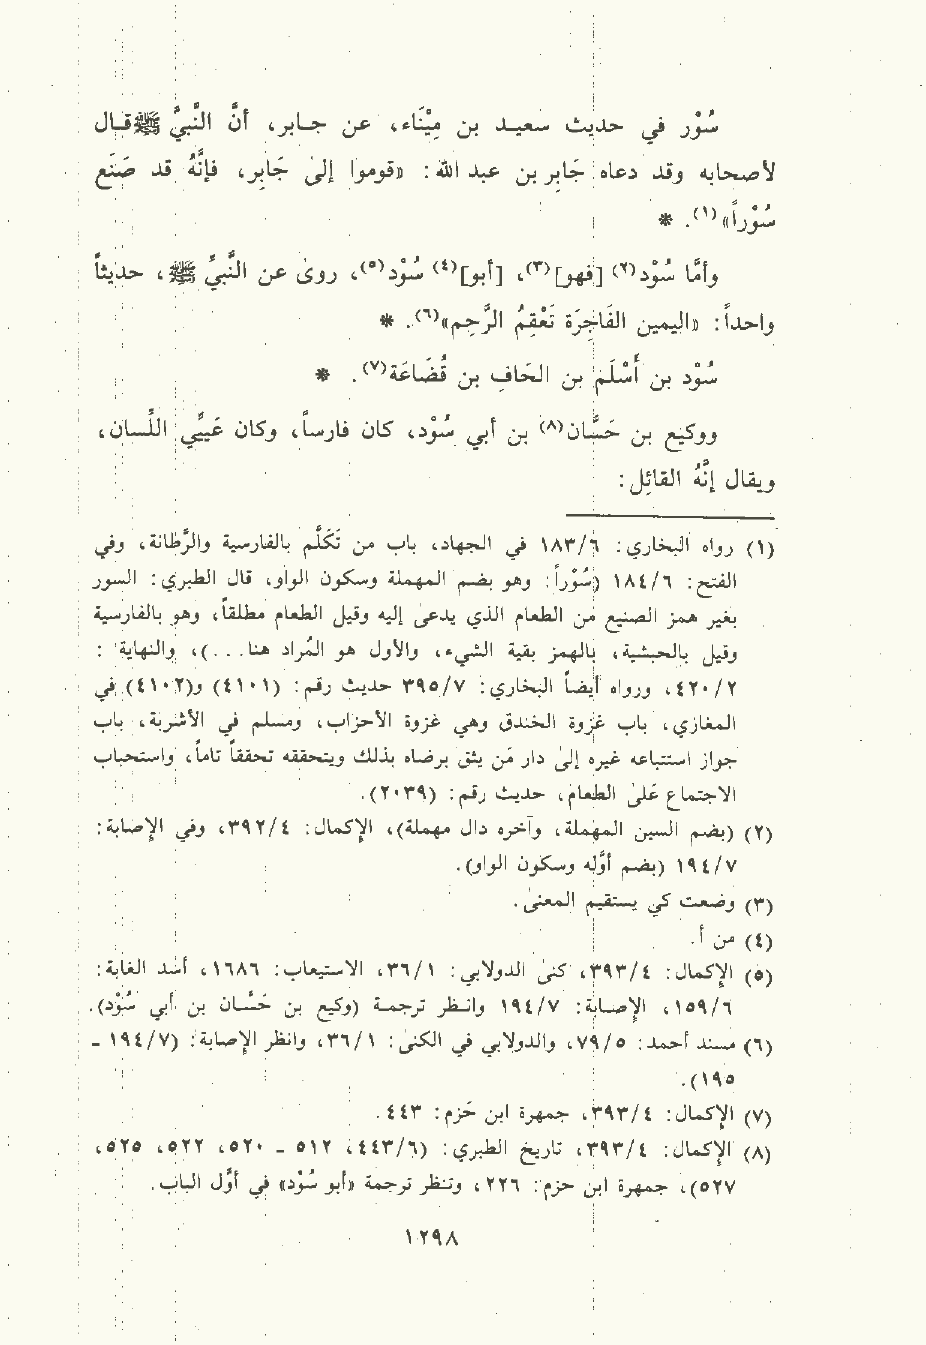 سُوْر في حديث سعيد بن مِيْنَاء، عن جابر، أنَّ النَّبيَّ ﷺ قال
لأصحابه وقد دعاه جَابِر بن عبد الله: «قوموا إلىٰ جَابِر، فإنَّهُ قد صَنَع
سُوْراً»(١). *
وأمَّا سُوْد(٢) [فهو](٣)، [أبو](٤) سُوْد(٥)، روىٰ عن النَّبيِّ ﷺ، حديثاً
واحداً: «اليمين الفَاجِرَة تَعْقِمُ الرَّحِم»(٦). *
سُوْد بن أَسْلَم بن الحَافِ بن قُضَاعَة(٧). *
ووكيع بن حَسَّان(٨) بن أبي سُوْد، كان فارساً، وكان عَييِّي اللِّسان،
ويقال إنَّهُ القائِل:
(١) رواه البخاري: ١٨٣/٦ في الجهاد، باب من تَكَلَّم بالفارسية والرَّطانة، وفي
الفتح: ١٨٤/٦ (سُوْراً: وهو بضم المهملة وسكون الواو، قال الطبري: السور
بغير همز الصنيع من الطعام الذي يدعىٰ إليه وقيل الطعام مطلقاً، وهو بالفارسية
وقيل بالحبشية، بالهمز بقية الشيء، والأول هو المُراد هنا...)، والنهاية:
٤٢٠/٢، ورواه أيضاً البخاري: ٣٩٥/٧ حديث رقم: (٤١٠١) و(٤١٠٢) في
المغازي، باب غزوة الخندق وهي غزوة الأحزاب، ومسلم في الأشربة، باب
جواز استتباعه غيره إلىٰ دار مَن يثق برضاه بذلك ويتحققه تحققاً تاماً، واستحباب
الاجتماع عَلىٰ الطعام، حديث رقم: (٢٠٣٩).
(٢) (بضم السين المهملة، وآخره دال مهملة)، الإكمال: ٣٩٢/٤، وفي الإصابة:
١٩٤/٧ (بضم أوَّله وسكون الواو).
(٣) وضعت كي يستقيم المعنىٰ.
(٤) من أ.
(٥) الإكمال: ٣٩٣/٤، كنىٰ الدولابي: ٣٦/١، الاستيعاب: ١٦٨٦، أسد الغابة:
١٥٩/٦، الإصابة: ١٩٤/٧ وانظر ترجمة (وكيع بن حَسَّان بن أبي سُوْد).
(٦) مسند أحمد: ٧٩/٥، والدولابي في الكنىٰ: ٣٦/١، وانظر الإصابة: (١٩٤/٧ ـ
١٩٥).
(٧) الإكمال: ٣٩٣/٤، جمهرة ابن حَزم: ٤٤٣.
(٨) الإكمال: ٣٩٣/٤، تاريخ الطبري: (٤٤٣/٦، ٥١٢ ـ ٥٢٠، ٥٢٢، ٥٢٥،
٥٢٧)، جمهرة ابن حزم: ٢٢٦، وتنظر ترجمة «أبو سُوْد» في أوَّل الباب.
١٢٩٨